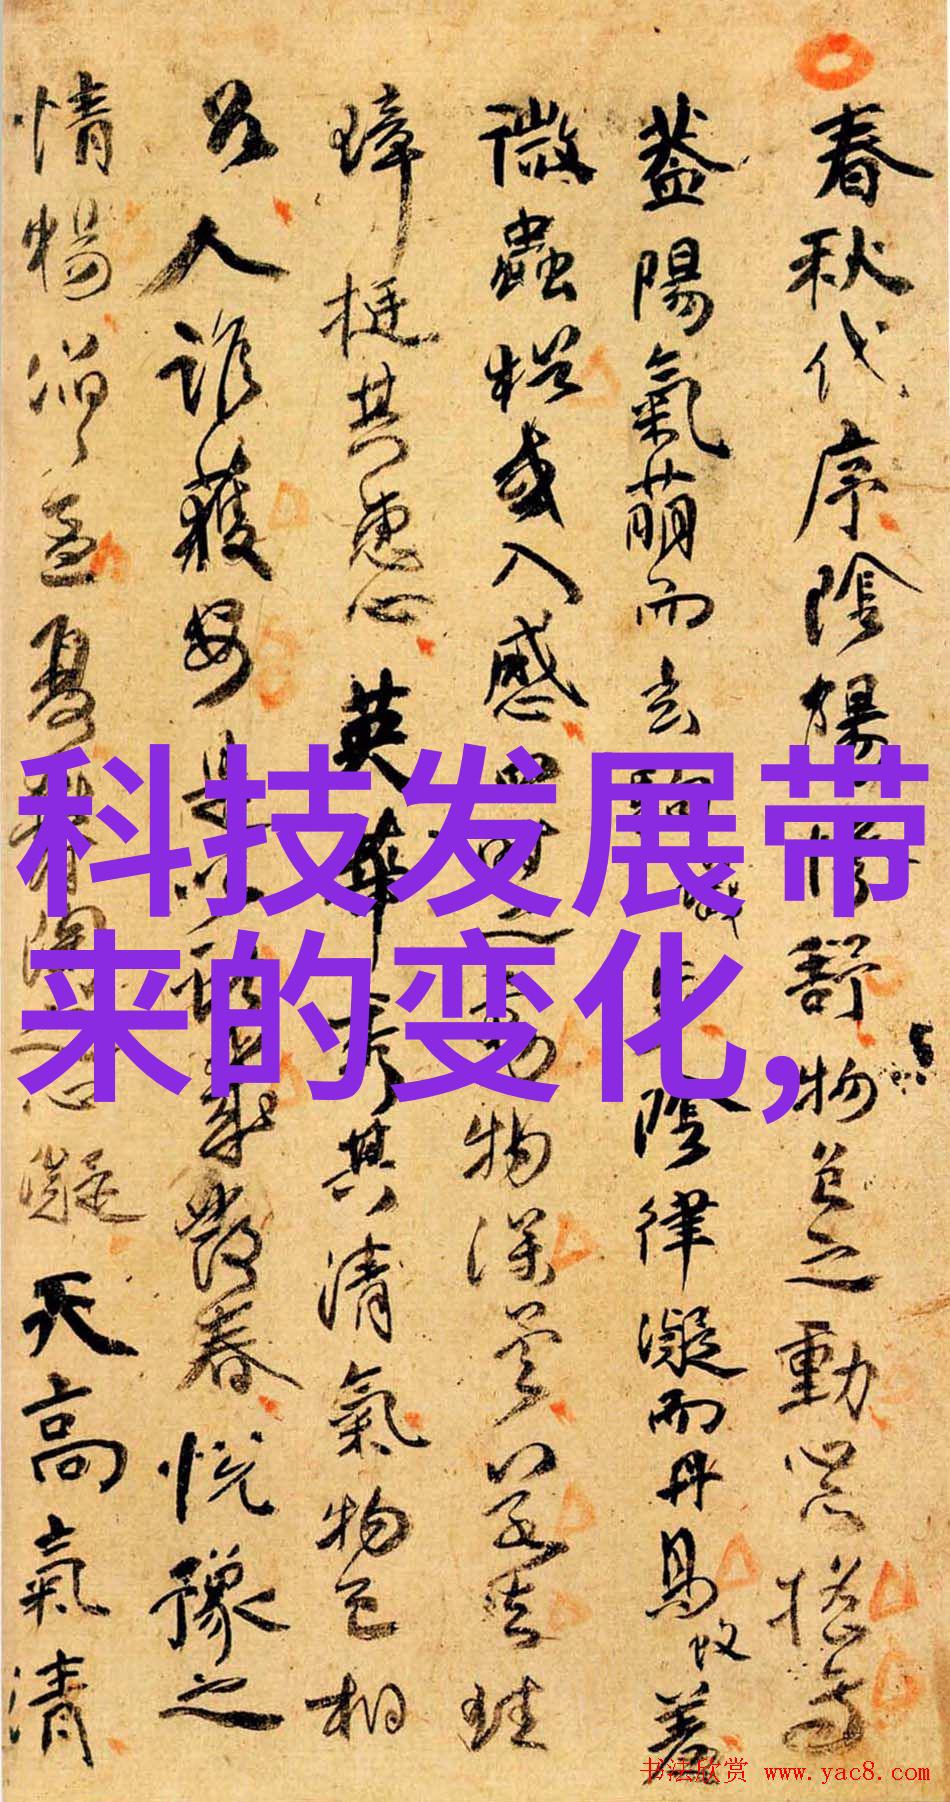 春秋代序陰陽慘舒物色之動心亦搖焉
蓋陽氣萌而玄駒 陰律凝而丹鳥 羞
微蟲猶或入感四時之動物深矣若夫珪
璋挺其惠心英華秀其清氣物色相
召人誰獲安是以獻歲發春悅豫之
情暢滔〻孟夏 陶之心凝天高氣清
科技发展带
来的变化,
书法欣赏 www.yac8.com